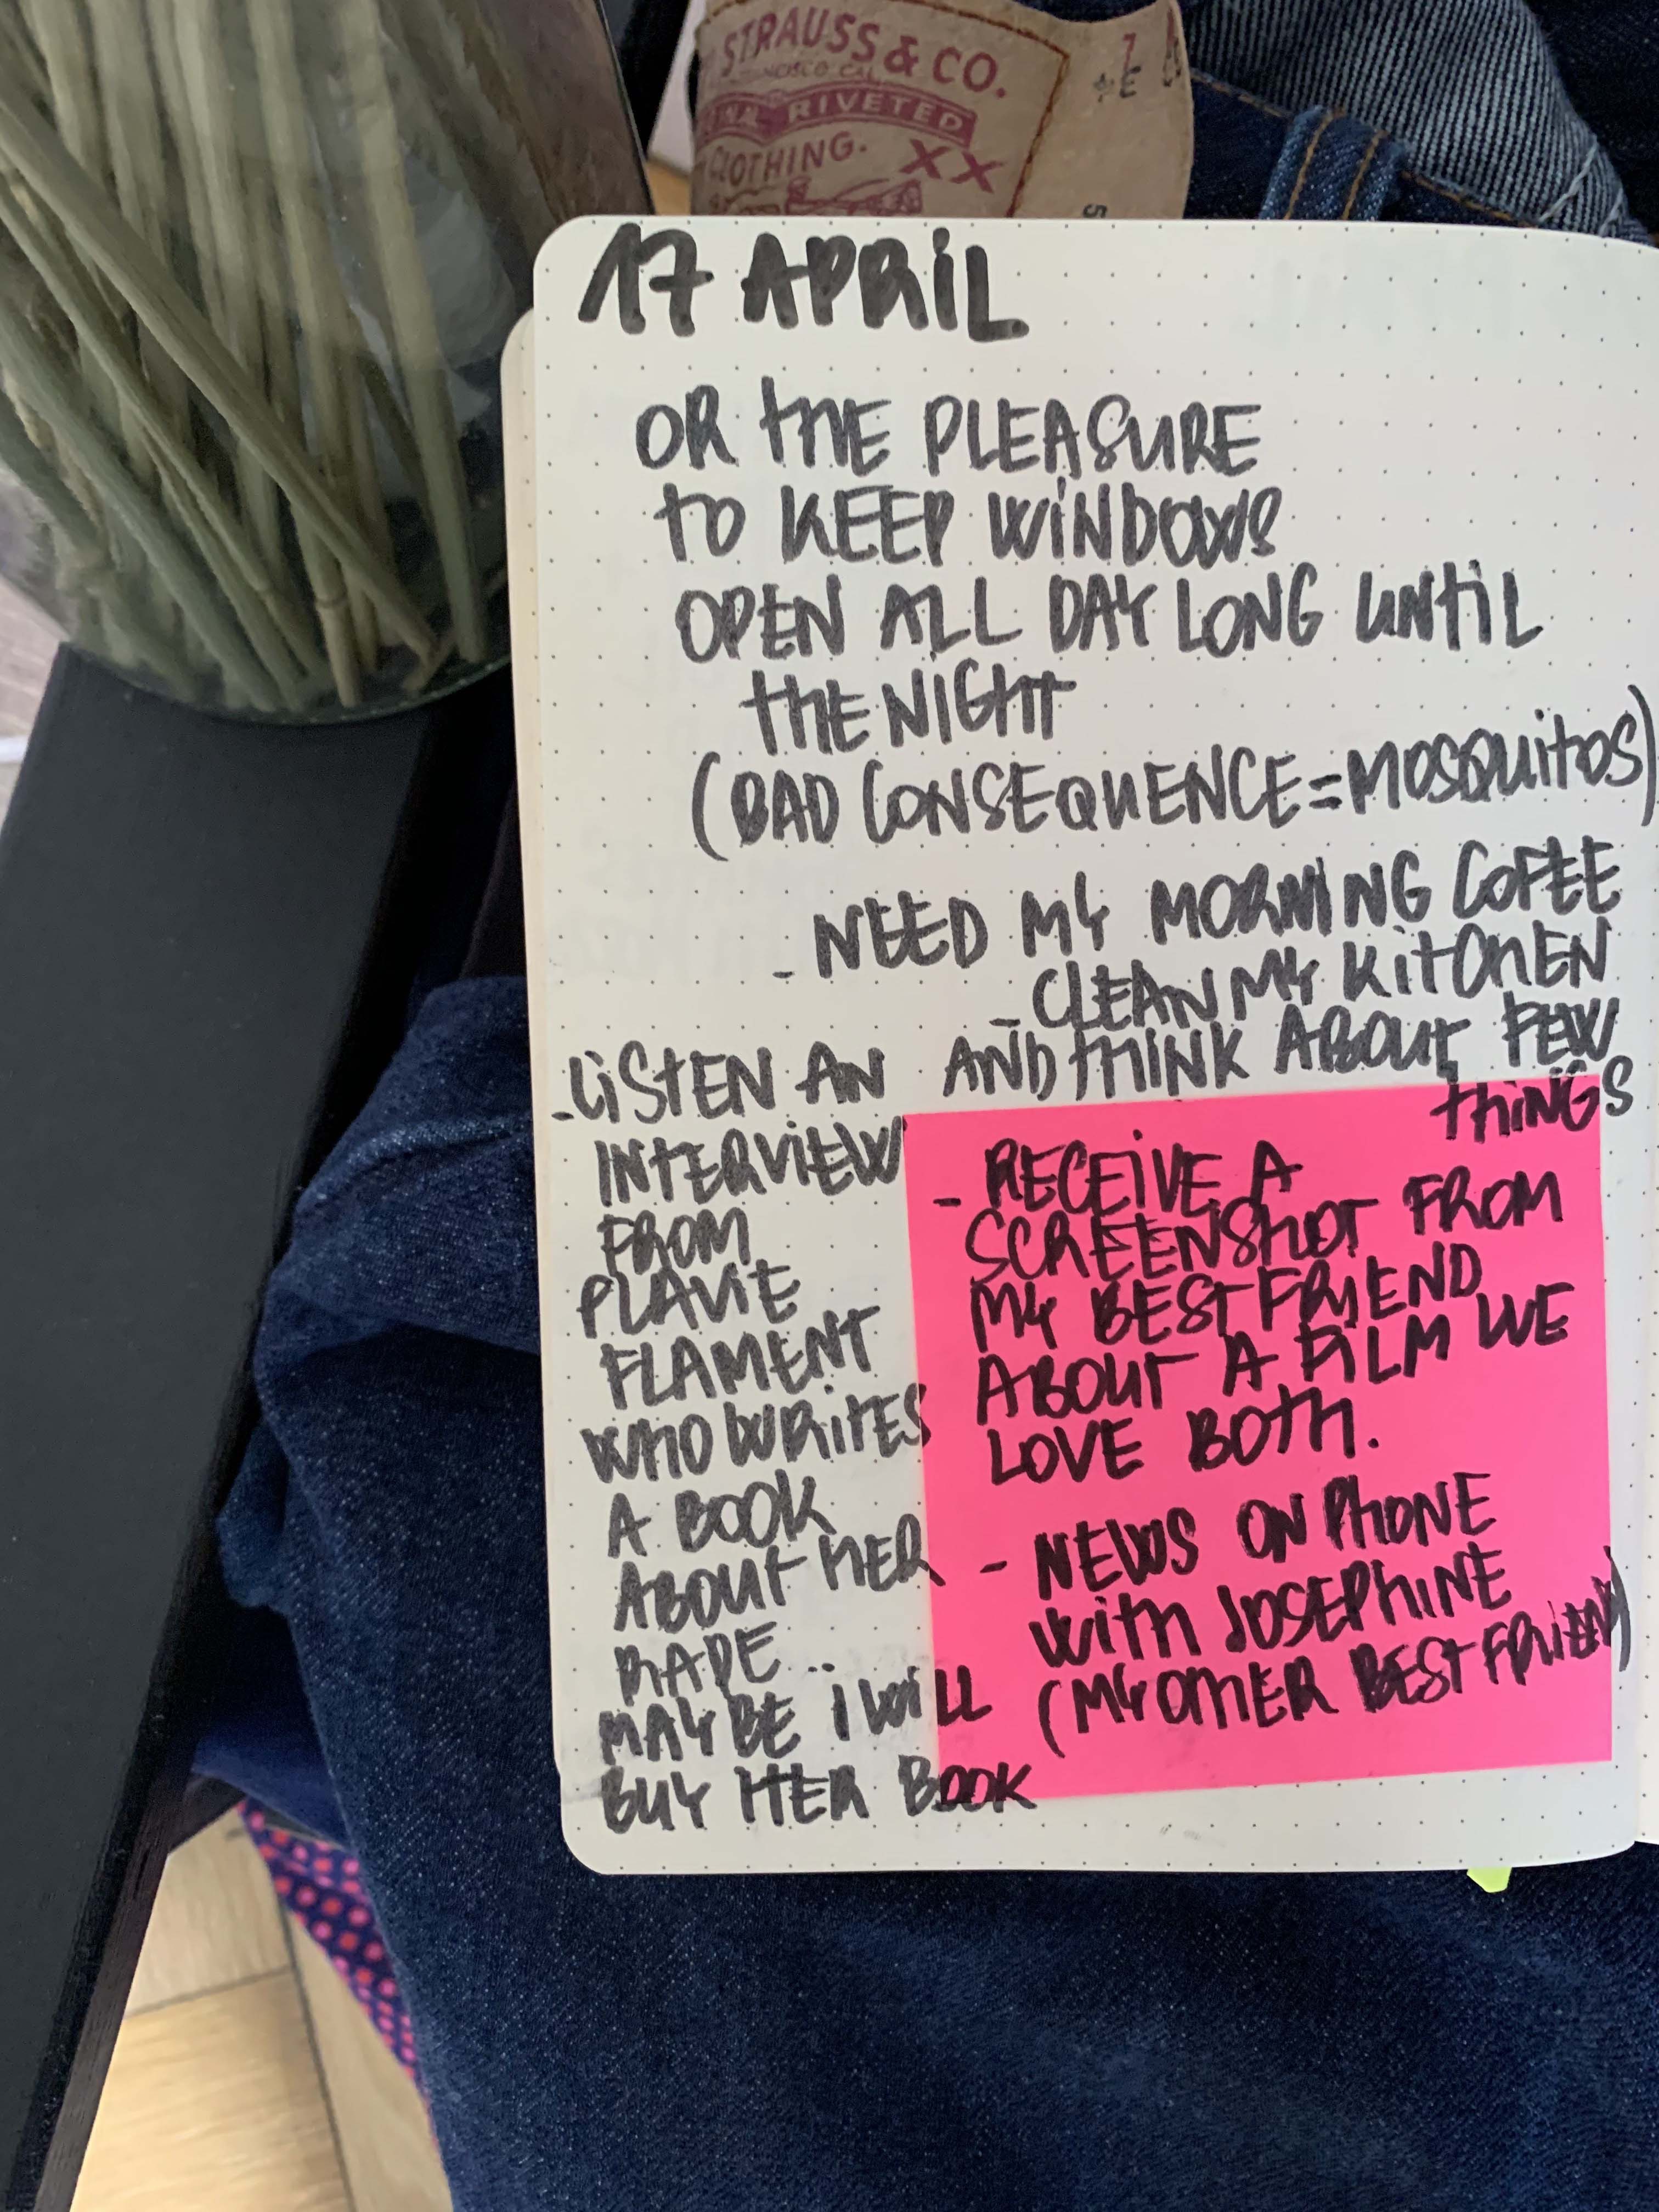 STRAUSS & CO.
RIVETED
CLOTHING. XX
17 APRIL
OR THE PLEASURE
TO KEEP WINDOWS
OPEN ALL DAY LONG UNTIL
THE NIGHT
(BAD CONSEQUENCE=MOSQUITOS)
- NEED MY MORNING COFEE
- CLEAN MY KITCHEN
AND THINK ABOUT FEW
THINGS
- LISTEN AN
INTERVIEW
FROM
FLAVIE
FLAMENT
WHO WRITES
A BOOK
ABOUT HER
RAPE
MAYBE i WILL
BUY HER BOOK
- RECEIVE A
SCREENSHOT FROM
MY BEST FRIEND
ABOUT A FILM WE
LOVE BOTH.
- NEWS ON PHONE
WITH JOSEPHINE
(MY OTHER BEST FRIEND)